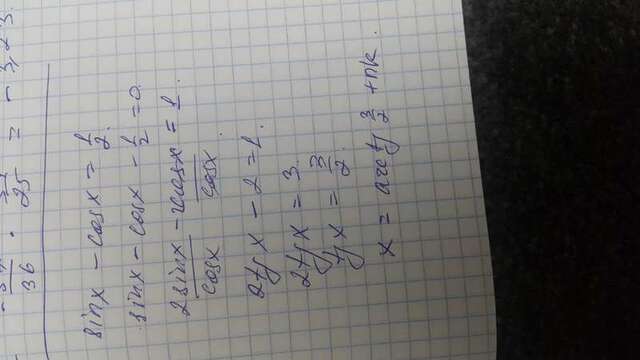 36 · 25 = - 3,23
sinx - cosx = 1/2.
sinx - cosx - 1/2 = 0
2sinx/cosx - 2cosx/cosx = 1.
2tgx - 2 = 1.
2tgx = 3.
tgx = 3/2.
x = arctg 3/2 + πk.